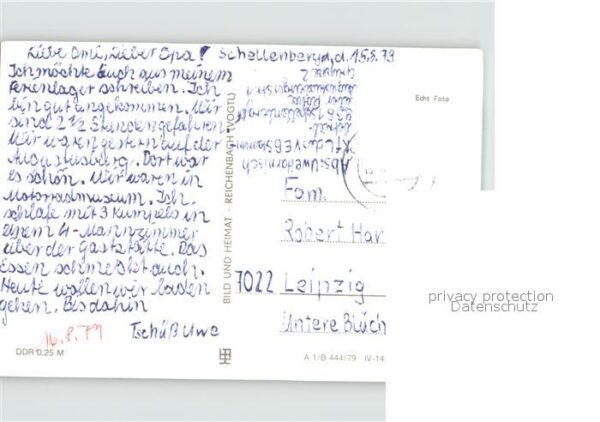 Liebe Omi, Lieber Opa! Schellenberg, d. 15.8.79
Ich möchte Euch aus meinem
Ferienlager schreiben. Ich
bin gut angekommen. Wir
sind 2 1/2 Stunden gefahren
Wir waren gestern auf der
Augustusburg. Dort war
es schön. Wir waren im
Motorradmuseum. Ich
schlafe mit 3 Kumpels in
einem 4-Mannzimmer
über der Gaststätte. Das
Essen schmeckt auch.
Heute wollen wir baden
gehen. Bis dahin
Tschüß Uwe
16.8.79
DDR 0,25 M
BILD UND HEIMAT · REICHENBACH (VOGTL)
Echt Foto
Abs. Uwe
Fam.
Robert Har
7022 Leipzig
Untere Blüch
A 1/B 444/79 IV-14
privacy protection
Datenschutz